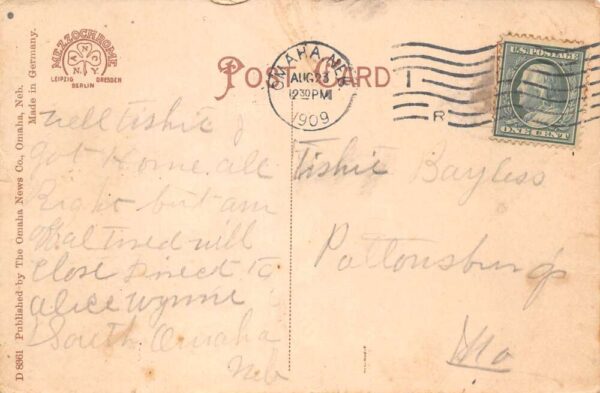 D 8961 Published by The Omaha News Co., Omaha, Neb.
Made in Germany.
MEZZOCHROME
A
N N
C
N.Y.
LEIPZIG DRESDEN
BERLIN
POST CARD
OMAHA, NEB.
AUG 23
12 30 PM
1909
1
R
U.S. POSTAGE
ONE CENT
well tishie I
got Home all
Right but am
tired will
close Direct to
alice wynne
South Omaha
Neb
Tishie Bayless
Pattonsburg
Mo